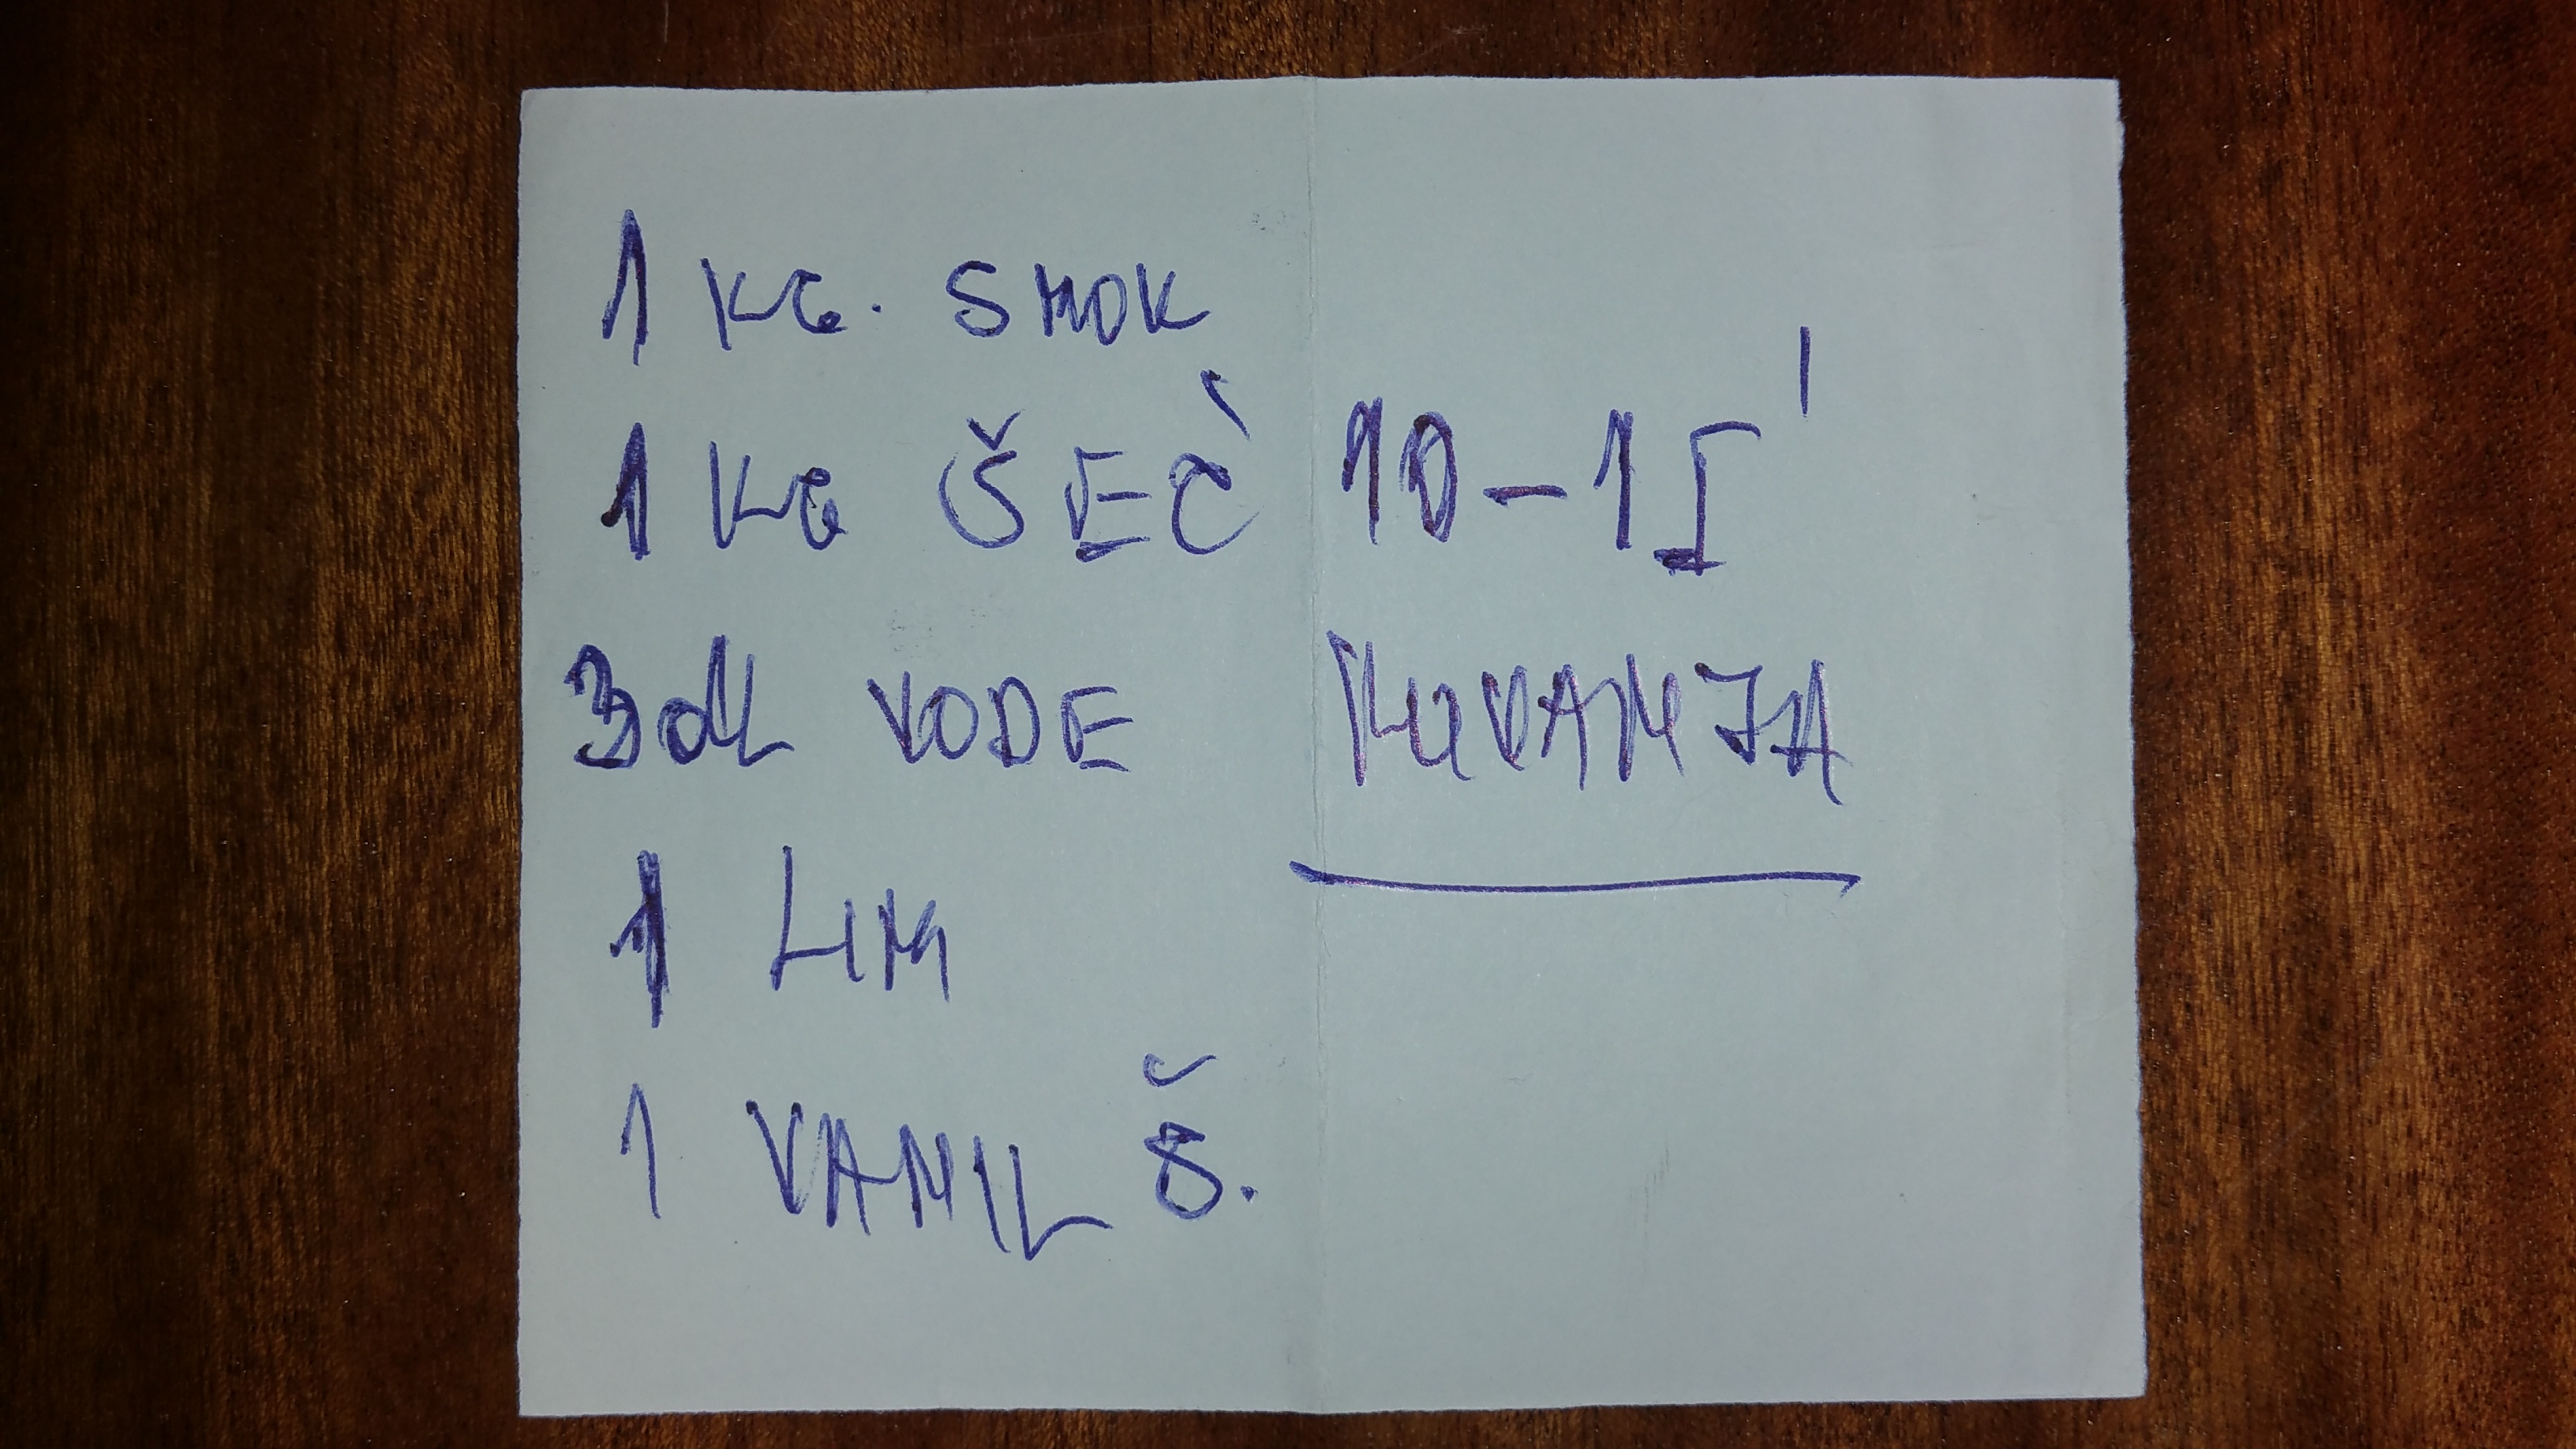 1 KG. SMOK
1 KG ŠEĆ 10-15'
3 DL VODE KUVANJA
1 LIM
1 VANIL Š.